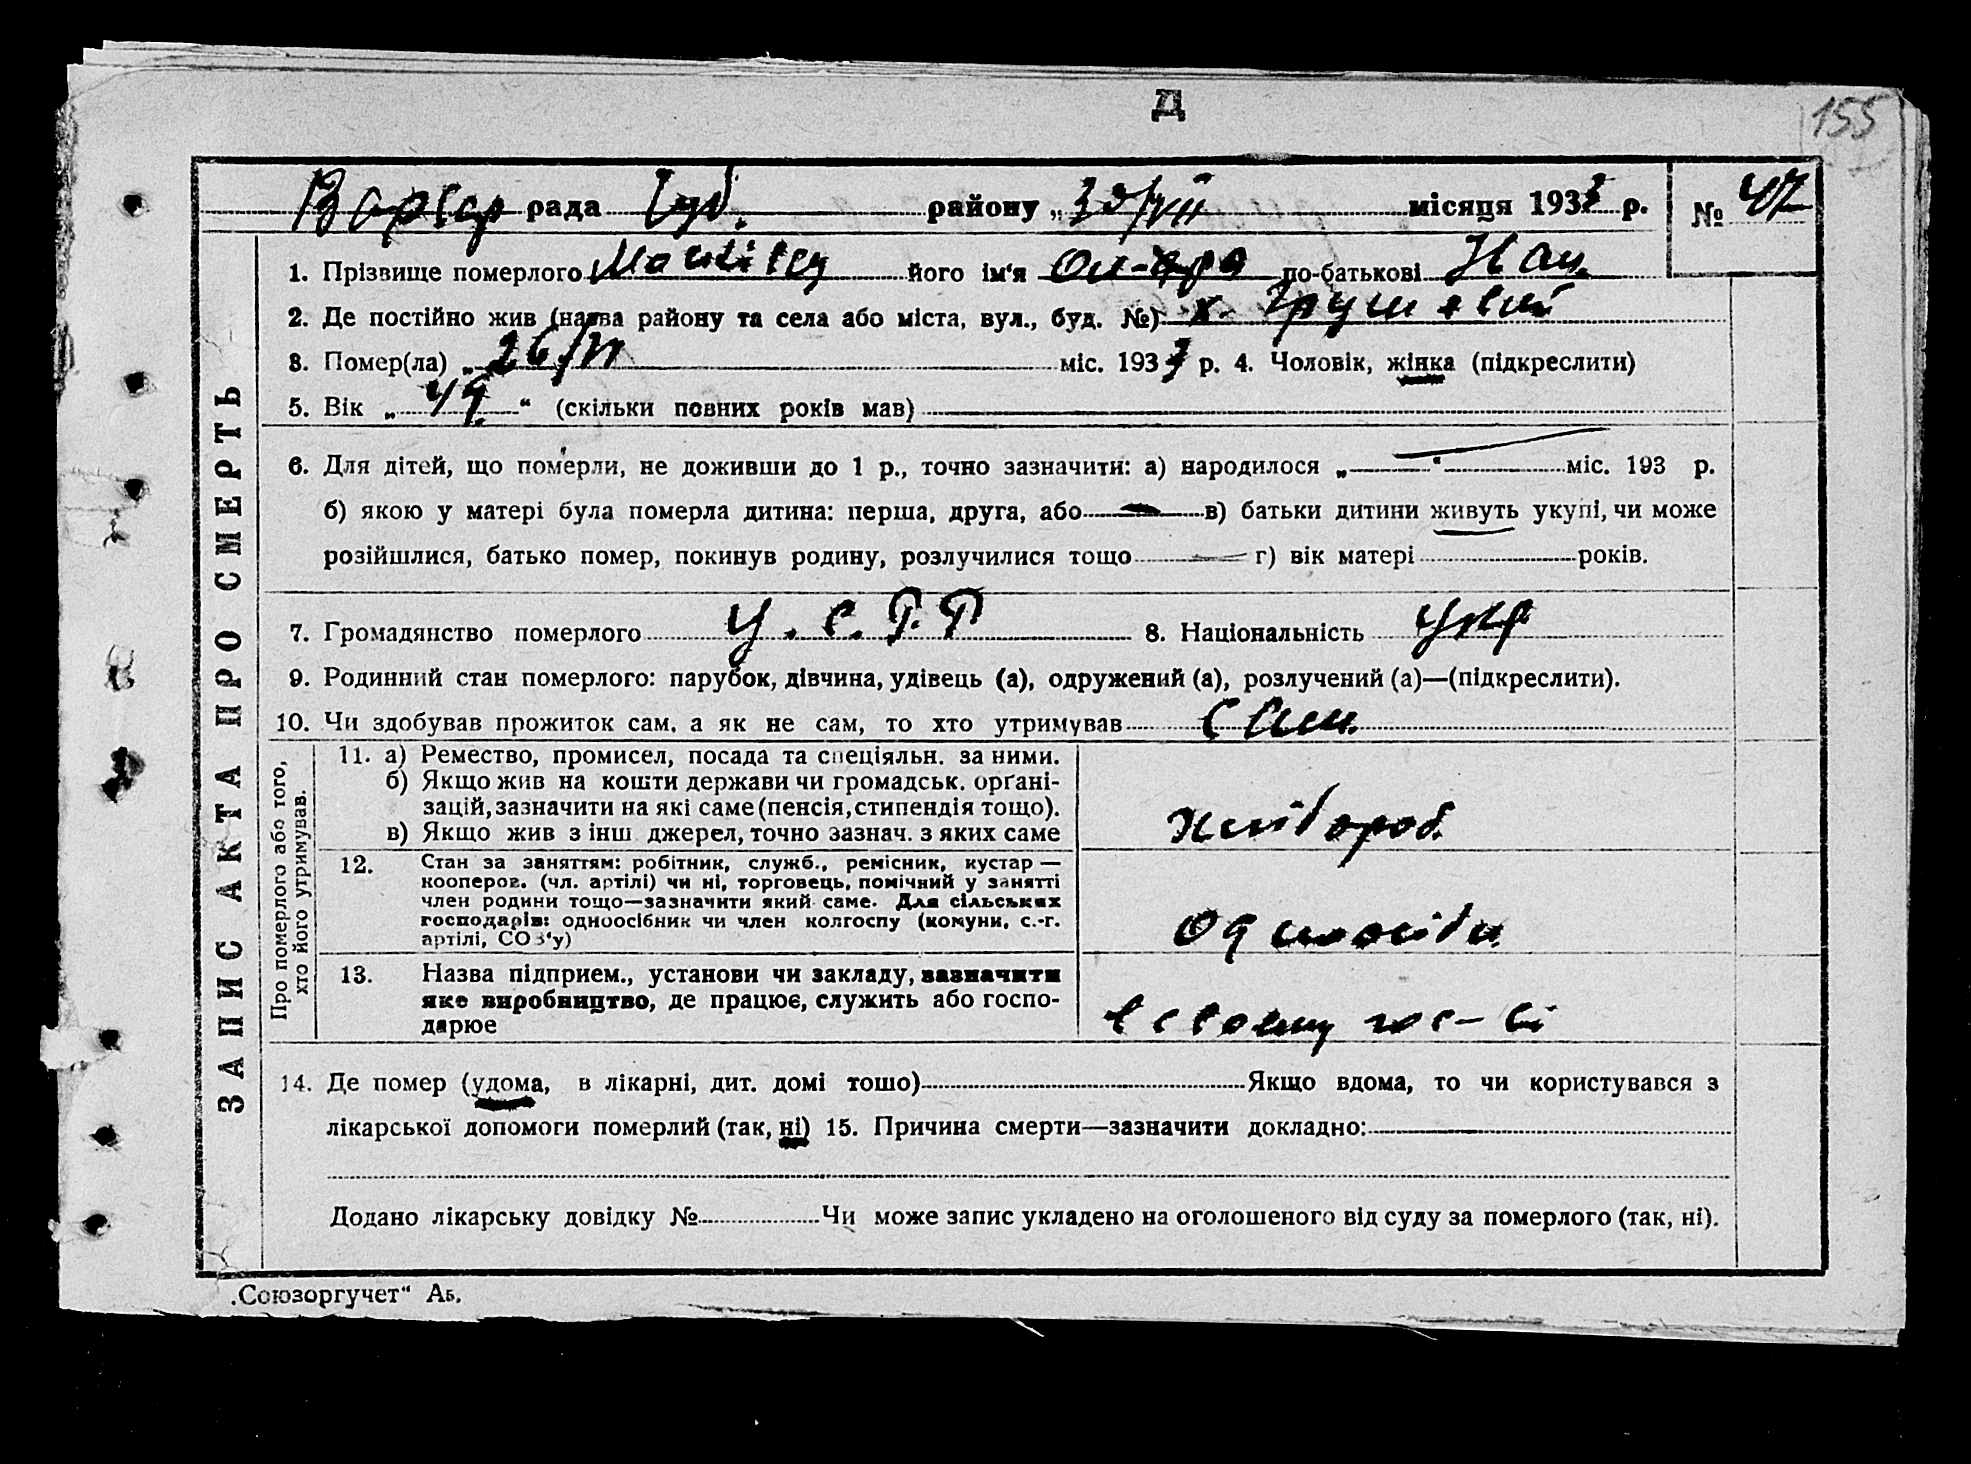 Д
155
Варвар рада Чуб. району „30/VII місяця 1933 р. № 47
ЗАПИС АКТА ПРО СМЕРТЬ
1. Прізвище померлого його ім'я по-батькові
2. Де постійно жив (назва району та села або міста, вул., буд. №) х. Грушевий
3. Помер(ла) „ міс. 1933 р. 4. Чоловік, жінка (підкреслити)
5. Вік „49.“ (скільки повних років мав)
6. Для дітей, що померли, не доживши до 1 р., точно зазначити: а) народилося „ “ міс. 193 р.
б) якою у матері була померла дитина: перша, друга, або в) батьки дитини живуть укупі, чи може
розійшлися, батько помер, покинув родину, розлучилися тощо г) вік матері років.
7. Громадянство померлого У.С.Р.Р 8. Національність Укр
9. Родинний стан померлого: парубок, дівчина, удівець (а), одружений (а), розлучений (а)—(підкреслити).
10. Чи здобував прожиток сам, а як не сам, то хто утримував сам.
Про померлого або того,
хто його утримував.
11. а) Ремество, промисел, посада та спеціяльн. за ними.
б) Якщо жив на кошти держави чи громадськ. орґані-
зацій, зазначити на які саме (пенсія, стипендія тощо).
в) Якщо жив з інш джерел, точно зазнач. з яких саме
хлібороб.
12. Стан за заняттям: робітник, служб., ремісник, кустар —
кооперов. (чл. артілі) чи ні, торговець, помічний у занятті
член родини тощо—зазначити який саме. Для сільських
господарів: одноосібник чи член колгоспу (комуни, с.-г.
артілі, СОЗ'у)
одноосібн.
13. Назва підприєм., установи чи закладу, зазначити
яке виробництво, де працює, служить або госпо-
дарює
в своєму гос-ві
14. Де помер (удома, в лікарні, дит. домі тошо) Якщо вдома, то чи користувався з
лікарської допомоги померлий (так, ні) 15. Причина смерти—зазначити докладно:
Додано лікарську довідку № Чи може запис укладено на оголошеного від суду за померлого (так, ні).
„Союзоргучет“ Аб.